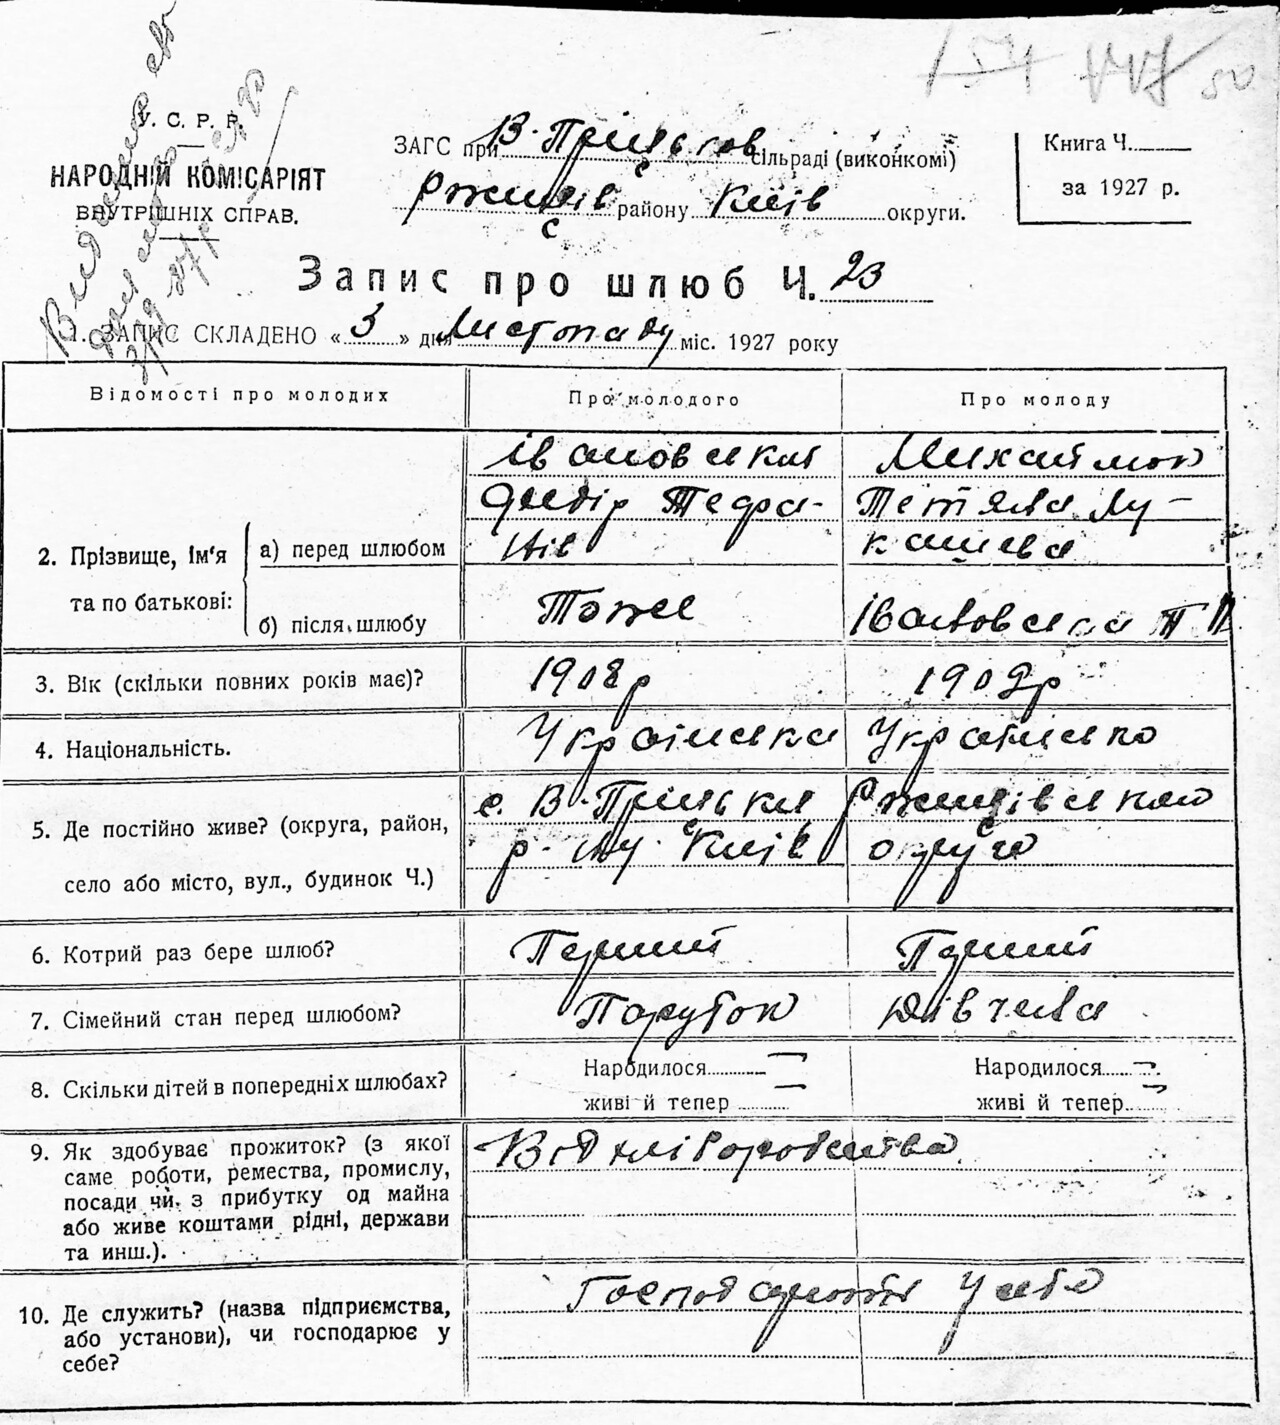 154 50
У. С. Р. Р.
НАРОДНІЙ КОМІСАРІЯТ
ВНУТРІШНІХ СПРАВ.
ЗАГС при В-Пріцьков сільраді (виконкомі)
Ржищів району Київ округи.
Книга Ч.
за 1927 р.
Запис про шлюб Ч. 23
1. ЗАПИС СКЛАДЕНО « 3 » дня Листопаду міс. 1927 року
Відомості про молодих
Про молодого
Про молоду
2. Прізвище, ім'я та по батькові:
а) перед шлюбом
Івановський
Федір Тефа-
нів
Михайлюк
Тетяна Лу-
кашева
б) після шлюбу
Тоже
Івановська
3. Вік (скільки повних років має)?
1908р
1909р
4. Національність.
Українська
Українсько
5. Де постійно живе? (округа, район,
село або місто, вул., будинок Ч.)
с. В-Пріцьки Ржищівської
р-ну Київ округи
6. Котрий раз бере шлюб?
Перший
Перший
7. Сімейний стан перед шлюбом?
Парубок
Дівчина
8. Скільки дітей в попередніх шлюбах?
Народилося —
живі й тепер —
Народилося —
живі й тепер —
9. Як здобуває прожиток? (з якої
саме роботи, ремества, промислу,
посади чи з прибутку од майна
або живе коштами рідні, держави
та инш.).
Від хліборобства
10. Де служить? (назва підприємства,
або установи), чи господарює у
себе?
Господарство У себе